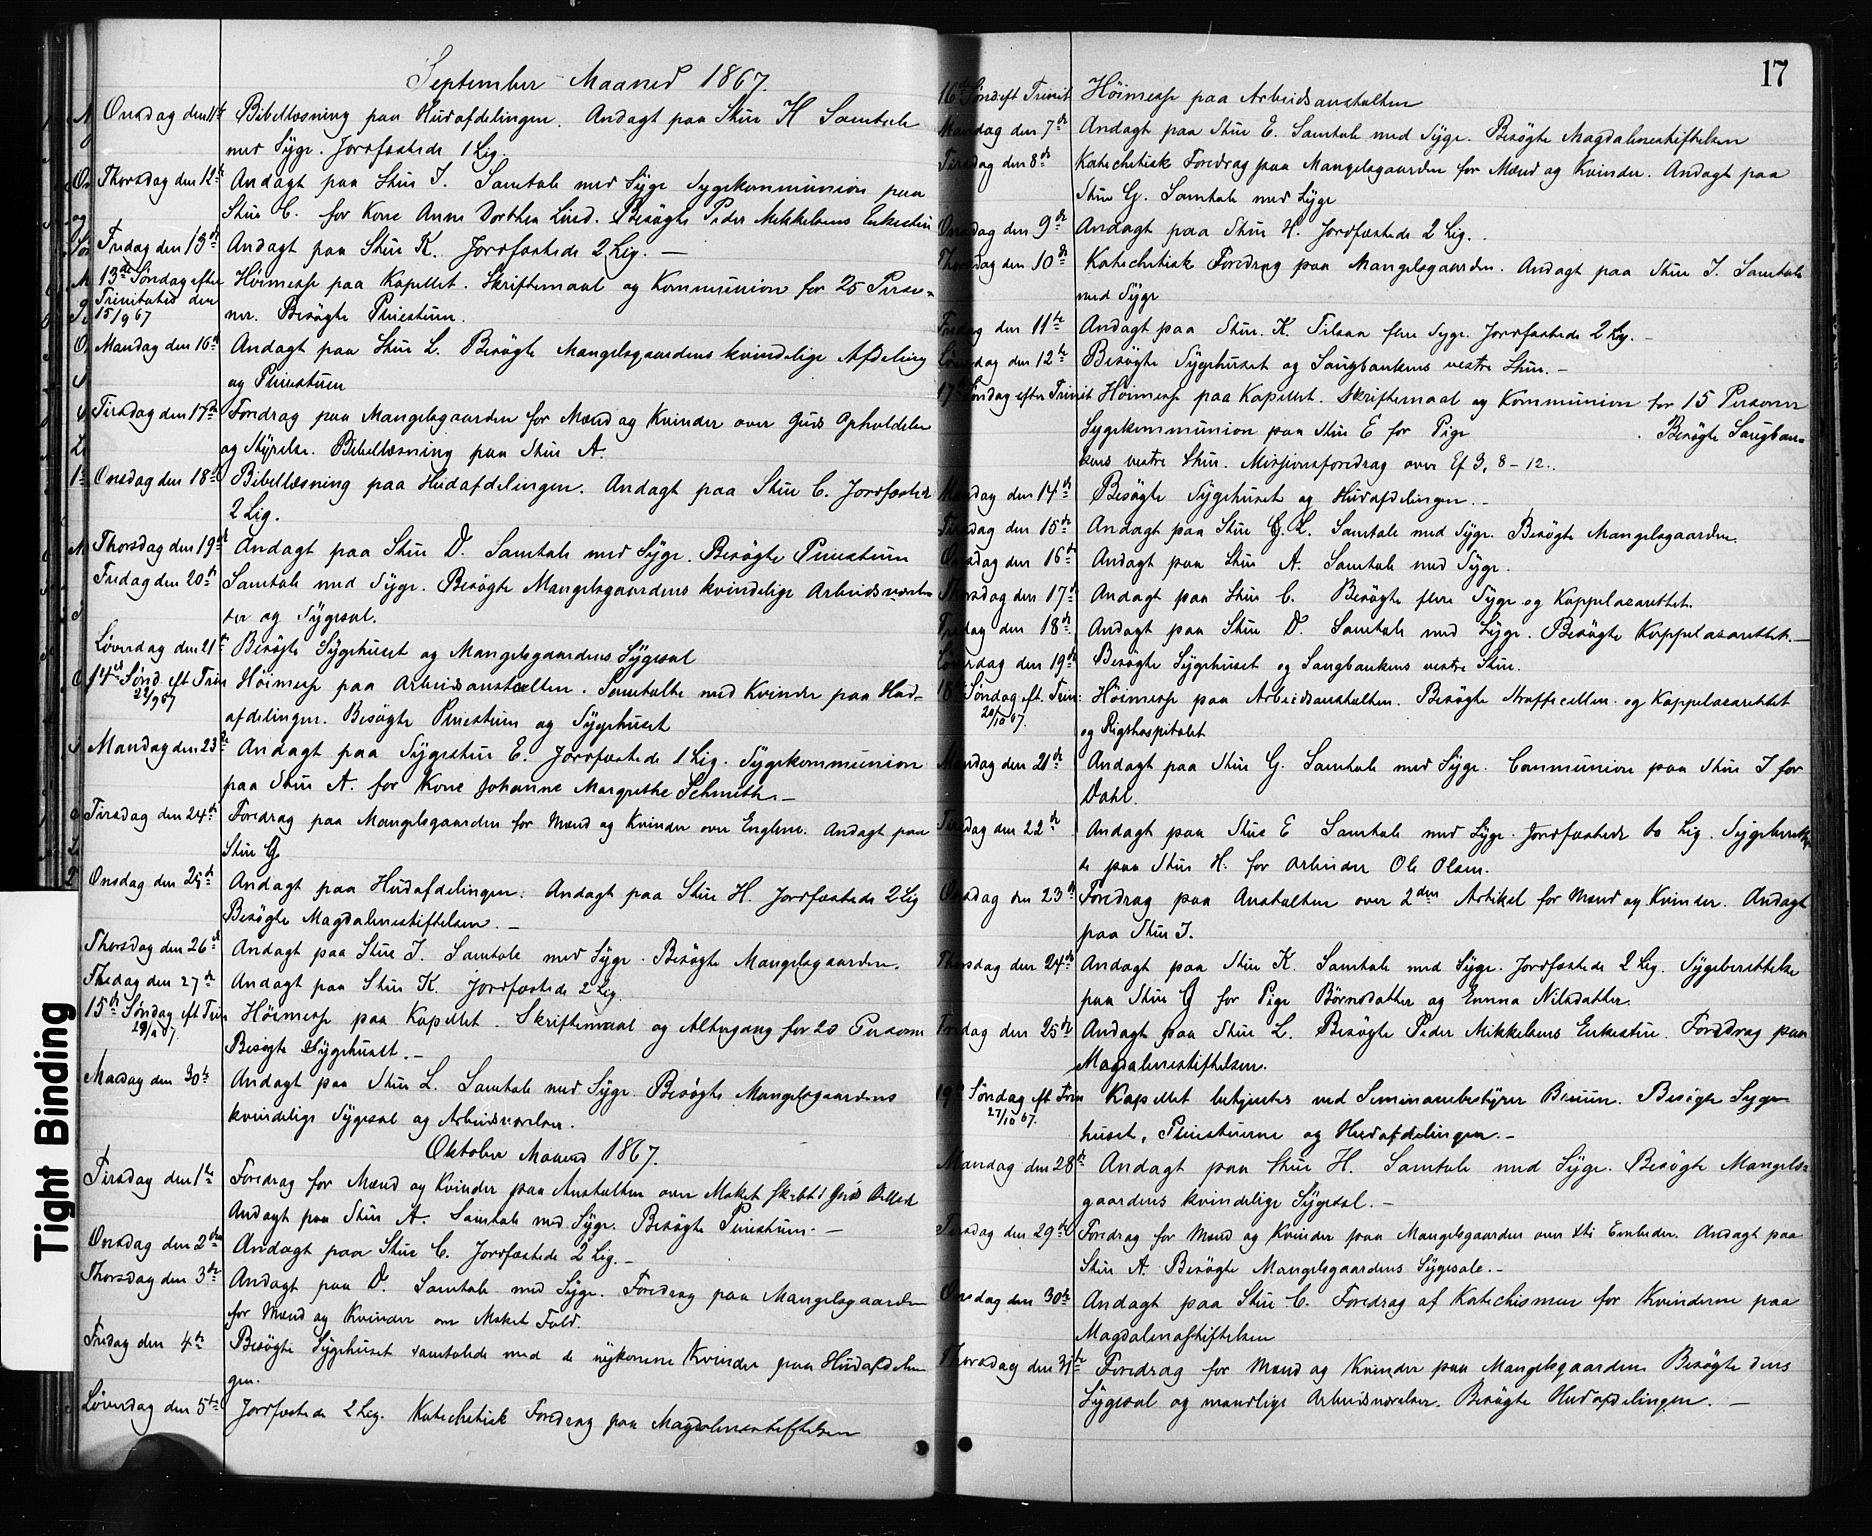 September Maaned 1867.
Onsdag den 11te Bibellæsning paa Hudafdelingen. Andagt paa Stue H Samtale
med Syge. Jordfæstede 1 Lig.
Thorsdag den 12te Andagt paa Stue I. Samtale med Syge Sygekommunion paa
Stue C. for Kone Anne Dorthea Lind. Besøgte Peder Mikkelsens Enkestue
Fredag den 13de Andagt paa Stue K. Jordfæstede 2 Lig. —
13de Søndag efter Trinitatis den 15/9 67 Høimesse paa Kapellet. Skriftemaal og Kommunion for 25 Perso-
ner. Besøgte Pleiestuen.
Mandag den 16de Andagt paa Stue L. Besøgte Mangelsgaardens kvindelige Afdeling
og Pleiestuen
Tirsdag den 17de Foredrag paa Mangelsgaarden for Mænd og Kvinder over Guds Opholdelse
og Styrelse. Bibellæsning paa Stue A.
Onsdag den 18de Bibellæsning paa Hudafdelingen. Andagt paa Stue C. Jordfæstede
2 Lig.
Thorsdag den 19de Andagt paa Stue D. Samtale med Syge. Besøgte Pleiestuen
Fredag den 20de Samtale med Syge. Besøgte Mangelsgaardens kvindelige Arbeidsværel-
ser og Sygesal.
Løverdag den 21de Besøgte Sygehuset og Mangelsgaardens Sygesal
14de Sønd. eft Trin 22/9 67 Høimesse paa Arbeidsanstalten. Samtalte med Kvinder paa Hud-
afdelingen. Besøgte Pleiestuen og Sygehuset
Mandag den 23de Andagt paa Sygestue E. Jordfæstede 1 Lig. Sygekommunion
paa Stue A. for Kone Johanne Margrethe Schmith. —
Tirsdag den 24de Foredrag paa Mangelsgaarden for Mænd og Kvinder over Englene. Andagt paa
Stue G
Onsdag den 25de Andagt paa Hudafdelingen. Andagt paa Stue H. Jordfæstede 2 Lig
Besøgte Magdalenestiftelsen. —
Thorsdag den 26de Andagt paa Stue I. Samtale med Syge. Besøgte Mangelsgaarden.
Fredag den 27de Andagt paa Stue K. Jordfæstede 2 Lig.
15de Søndag eft Trin 29/9 67. Høimesse paa Kapellet. Skriftemaal og Altergang for 20 Personer
Besøgte Sygehuset. —
Mandag den 30te Andagt paa Stue L. Samtale med Syge. Besøgte Mangelsgaardens
kvindelige Sygesal og Arbeidsværelser.
Oktober Maaned 1867.
Tirsdag den 1te Foredrag for Mænd og Kvinder paa Anstalten over Msket skabt i Guds Billede
Andagt paa Stue A. Samtale med Syge. Besøgte Pleiestuen. —
Onsdag den 2den Andagt paa Stue C. Jordfæstede 2 Lig. —
Thorsdag den 3die Andagt paa D. Samtale med Syge. Foredrag paa Mangelsgaarden
for Mænd og Kvinder om Mskets Fald.
Fredag den 4de Besøgte Sygehuset samtalede med de nykomne Kvinder paa Hudafdelin
gen.
Løverdag den 5te Jordfæstede 2 Lig. Katechetisk Foredrag paa Magdalenestiftelsen
17
16de Sønd eft Trinit Høimesse paa Arbeidsanstalten
Mandag den 7de Andagt paa Stue E. Samtale med Syge. Besøgte Magdalenestiftelsen
Tirsdag den 8de Katechetisk Foredrag paa Mangelsgaarden for Mænd og Kvinder. Andagt paa
Stue G. Samtale med Syge
Onsdag den 9de Andagt paa Stue H. Jordfæstede 2 Lig.
Thorsdag den 10de Katechetisk Foredrag paa Mangelsgaarden. Andagt paa Stue I. Samtale
med Syge
Fredag den 11te Andagt paa Stue K. Tilsaa flere Syge. Jordfæstede 2 Lig. —
Løverdag den 12te Besøgte Sygehuset og Saugbankens vestre Stue. —
17de Søndag efter Trinit Høimesse paa Kapellet. Skriftemaal og Kommunion for 15 Personer
Sygekommunion paa Stue E for Pige . Besøgte Saugban-
kens vestre Stue. Missionsforedrag over Ef 3, 8-12.
Mandag den 14de Besøgte Sygehuset og Hudafdelingen. —
Tirsdag den 15de Andagt paa Stue G. L. Samtale med Syge. Besøgte Mangelsgaarden.
Onsdag den 16de Andagt paa Stue A. Samtale med Syge.
Thorsdag den 17de Andagt paa Stue C. Besøgte flere Syge og Koppelazarettet.
Fredag den 18de Andagt paa Stue D. Samtale med Syge. Besøgte Koppelazarettet. —
Løverdag den 19de Besøgte Sygehuset og Saugbankens vestre Stue.
18de Søndag eft. Trin: 20/10 67. Høimesse paa Arbeidsanstalten. Besøgte Straffecellen og Koppelazarettet
og Rigshospitalet
Mandag den 21de Andagt paa Stue G. Samtale med Syge. Communion paa Stue I for
Dahl.
Tirsdag den 22de Andagt paa Stue E Samtale med Syge. Jordfæstede to Lig. Sygeberettel
se paa Stue H. for Arbeider Ole Olsen.
Onsdag den 23de Foredrag paa Anstalten over 2den Artikel for Mænd og Kvinder. Andagt
paa Stue I.
Thorsdag den 24de Andagt paa Stue K. Samtale med Syge. Jordfæstede 2 Lig. Sygeberettelse
paa Stue G for Pige Børnsdatter og Emma Nilsdatter.
Fredag den 25de Andagt paa Stue L. Besøgte Peder Mikkelsens Enkestue. Foredrag paa
Magdalenestiftelsen.
19de Søndag eft Trin 27/10 67. Kapellet betjentes ved Seminariebestyrer Bruun. Besøgte Syge-
huset, Pleiestuerne og Hudafdelingen. —
Mandag den 28de Andagt paa Stue H. Samtale med Syge. Besøgte Mangels-
gaardens kvindelige Sygesal. —
Tirsdag den 29de Foredrag for Mænd og Kvinder paa Mangelsgaarden over Xti Embeder. Andagt paa
Stue A. Besøgte Mangelsgaardens Sygesale. —
Onsdag den 30te Andagt paa Stue C. Foredrag af Katechismen for Kvinderne paa
Magdalenastiftelsen
Thorsdag den 31te Foredrag for Mænd og Kvinder paa Mangelsgaarden. Besøgte dens
Sygesal og mandlige Arbeidsværelser. Besøgte Hudafdelingen. —
Tight Binding